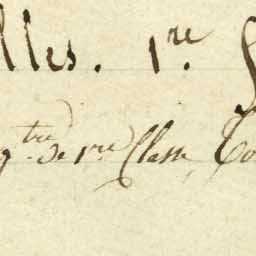 lles. 1.re
g.tre de 1.re Classe